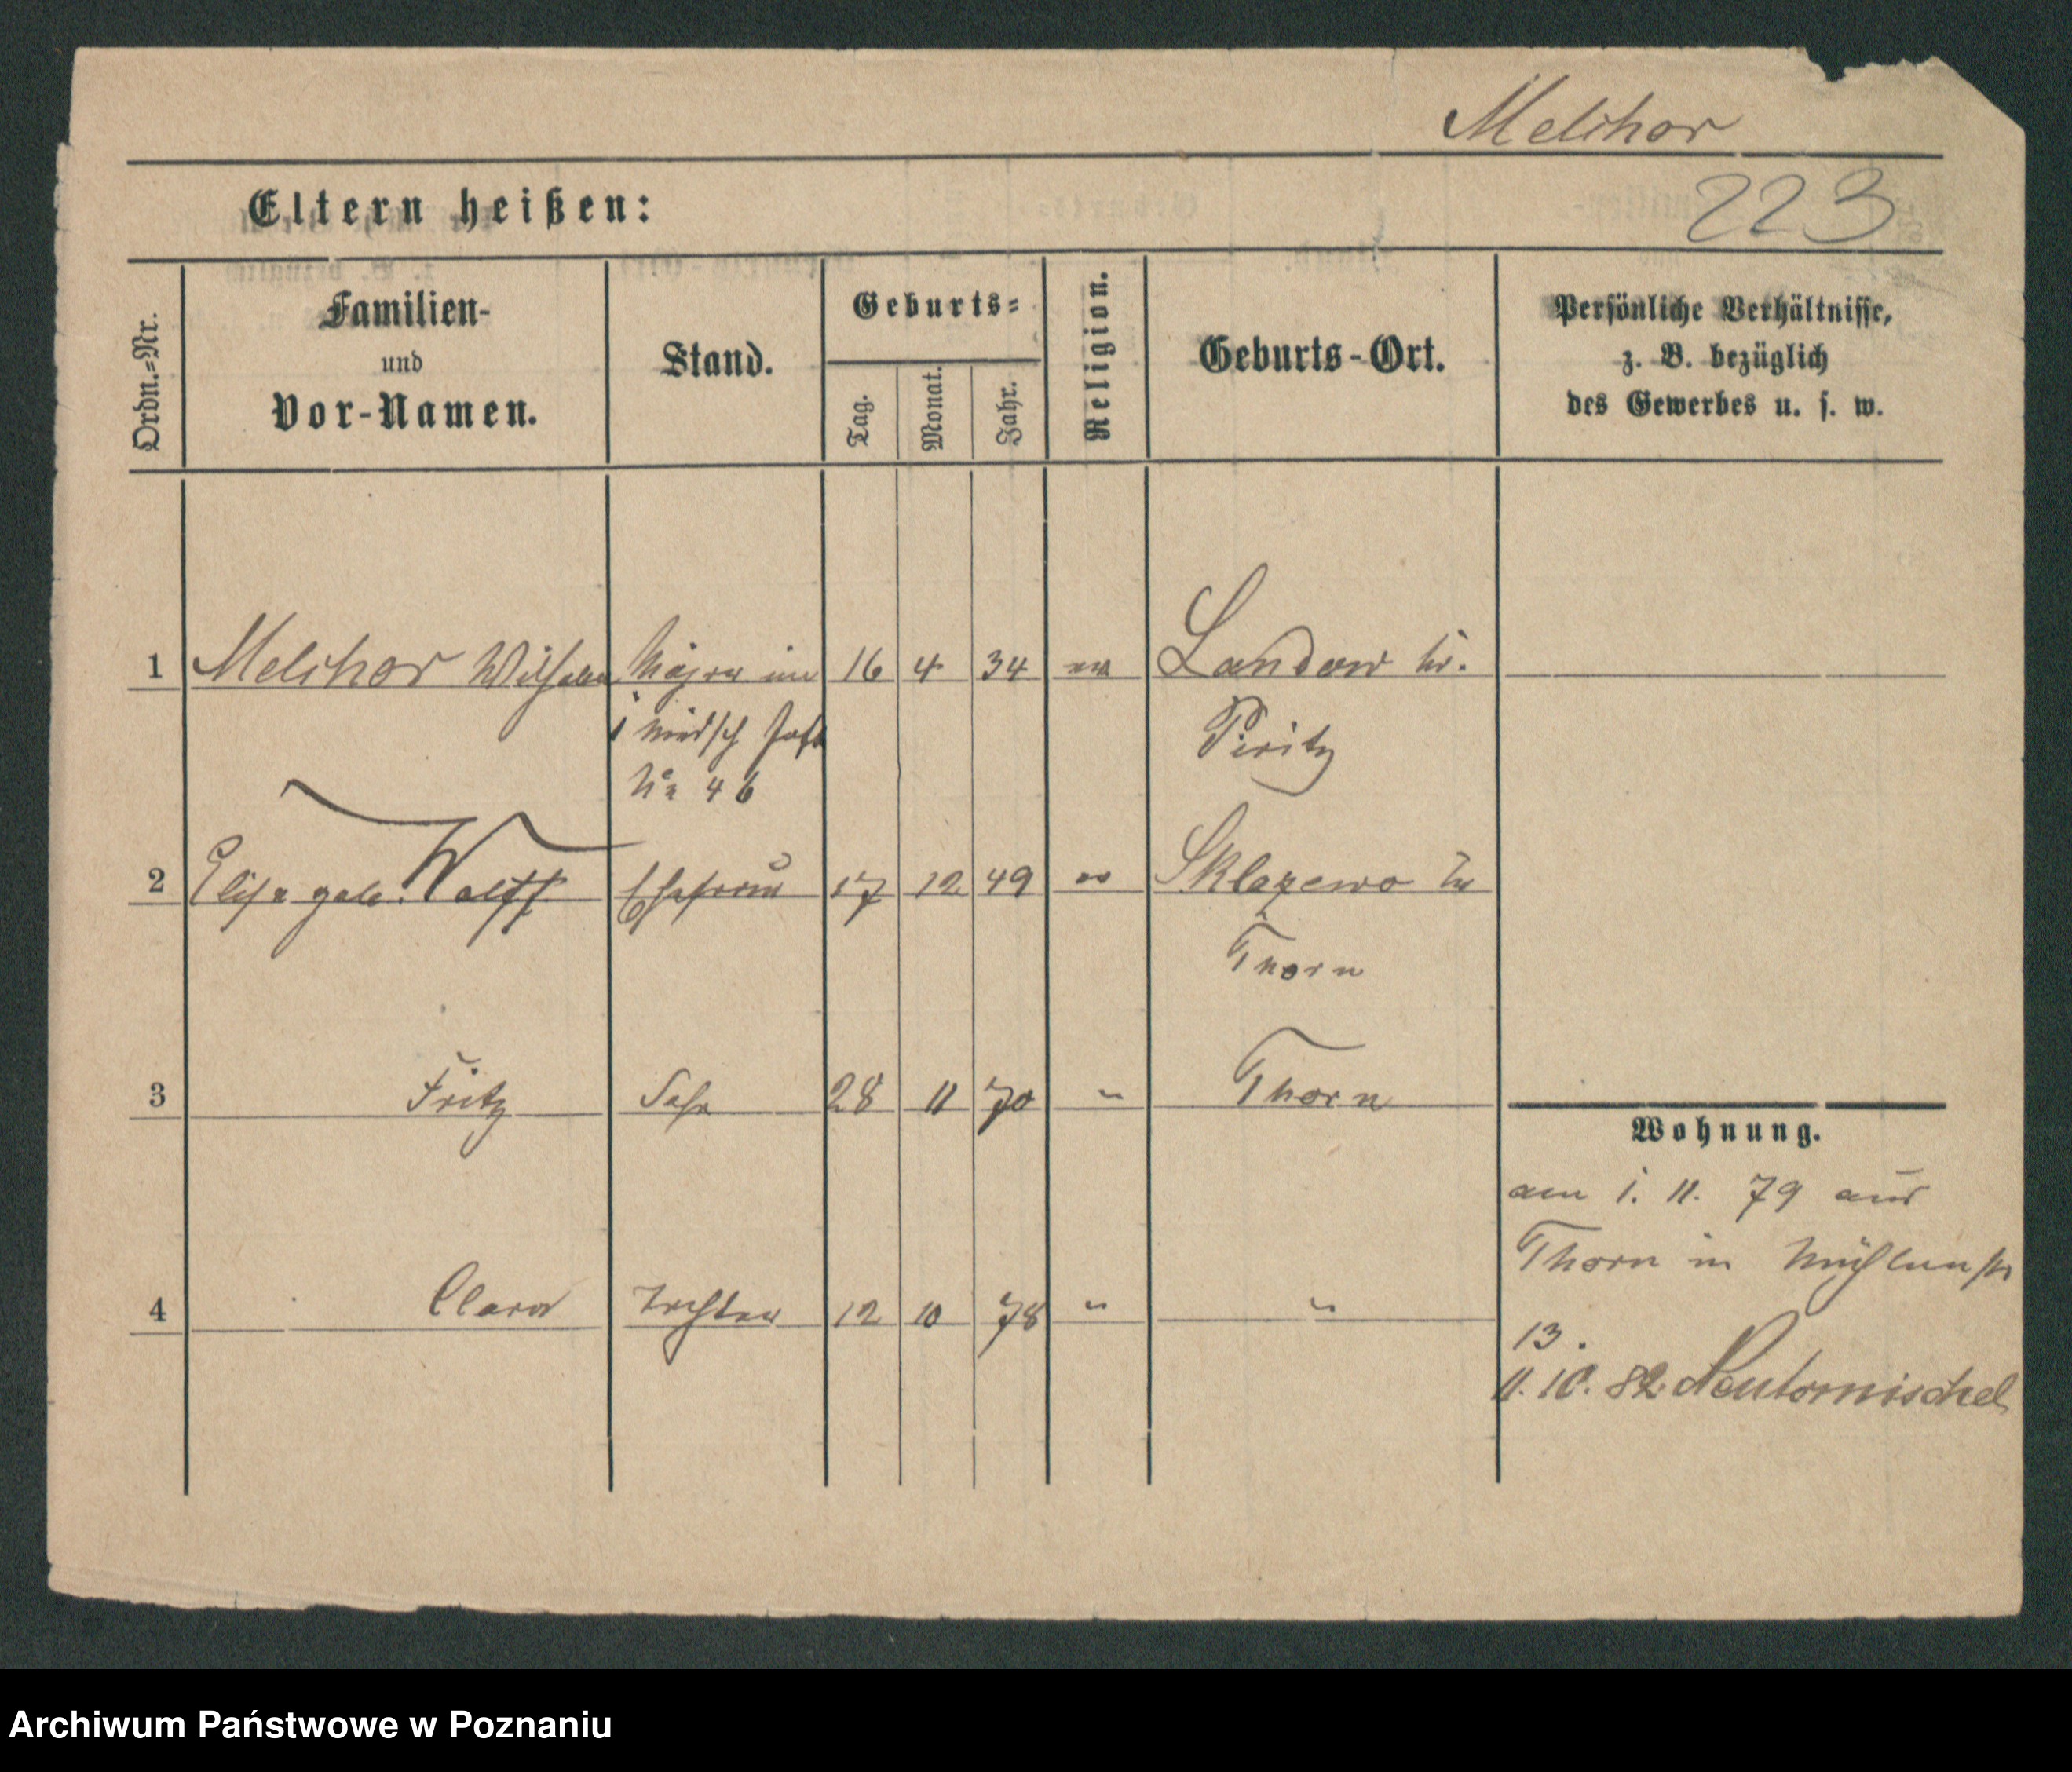 Melchor
223
Eltern heißen:
Ordn.=Nr.
Familien-
und
Vor-Namen.
Stand.
Geburts=
Tag.
Monat.
Jahr.
Religion.
Geburts-Ort.
Persönliche Verhältnisse,
z. B. bezüglich
des Gewerbes u. s. w.
1 Melchor Wilhelm Major im 16 4 34 Landow Kr.
Piritz
No 46
2 Elise geb. Wolff Ehefrau 17 12 49 " Sklazewo Kr
Thorn
3 Fritz Sohn 28 11 70 " Thorn
Wohnung.
am 1. 11. 79 aus
Thorn in Mühlenstr
4 Clara Tochter 12 10 78 " "
13.
11. 10. 82. Neutomischel
Archiwum Państwowe w Poznaniu